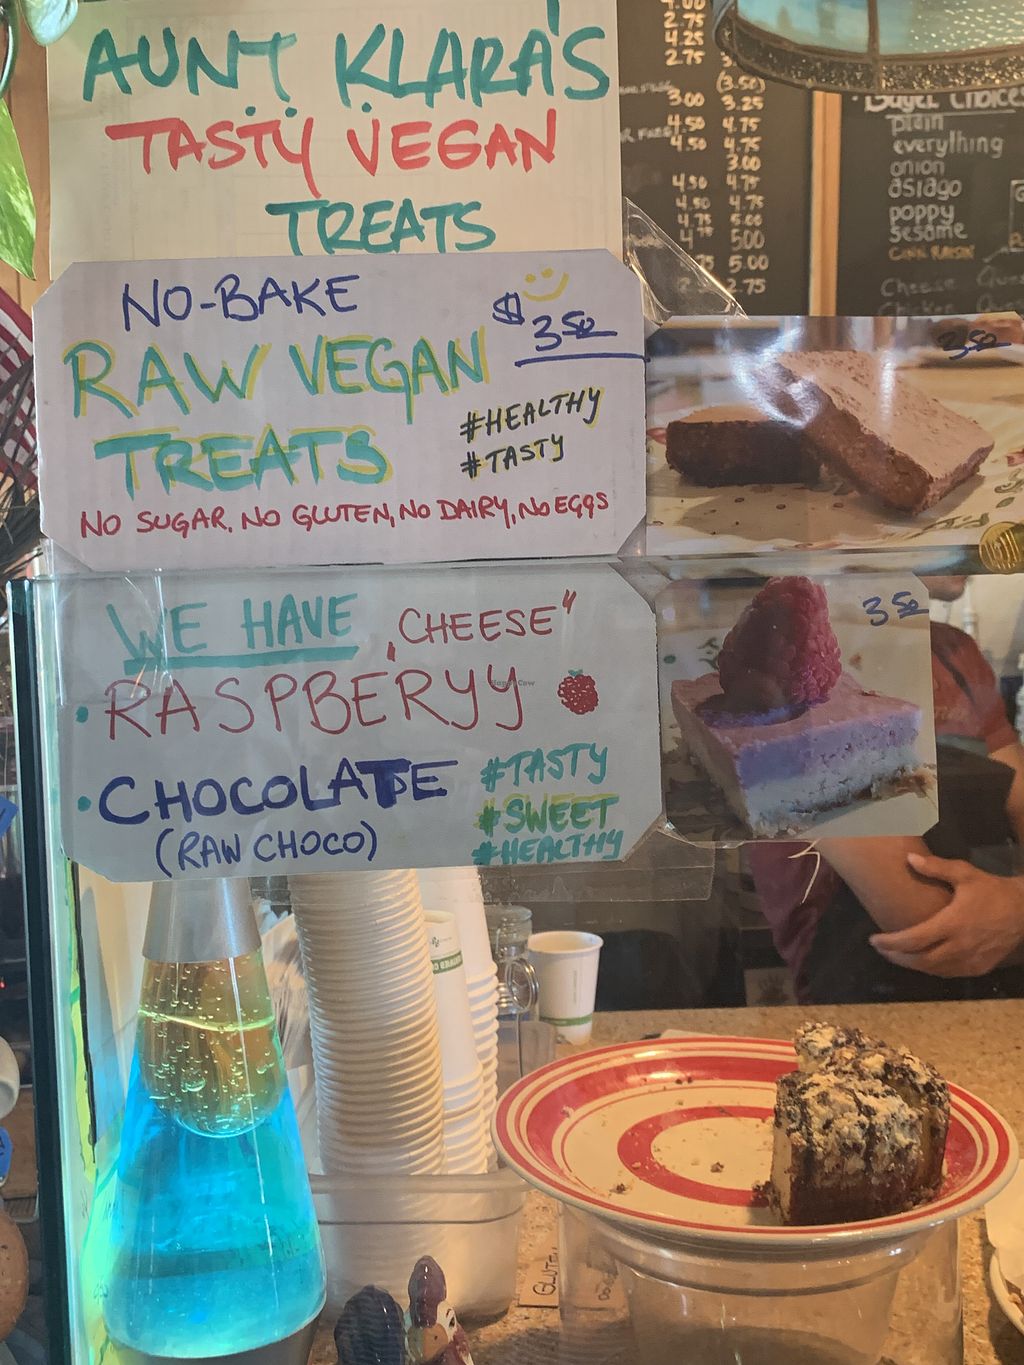 AUNT KLARA'S
TASTY VEGAN
TREATS
NO-BAKE
$3.50
RAW VEGAN
TREATS
#HEALTHY
#TASTY
NO SUGAR, NO GLUTEN, NO DAIRY, NO EGGS
WE HAVE „CHEESE"
• RASPBERYY
• CHOCOLATE
(RAW CHOCO)
#TASTY
#SWEET
#HEALTHY
3.50
3.50
2.75
4.25
2.75
(3.50)
3.00 3.25
4.50 4.75
4.50 4.75
3.00
4.50 4.75
4.75 5.00
4.75 5.00
5.00
2.75
Bagel Choices
plain
everything
onion
asiago
poppy
sesame
CINN RAISIN
Cheese
HappyCow